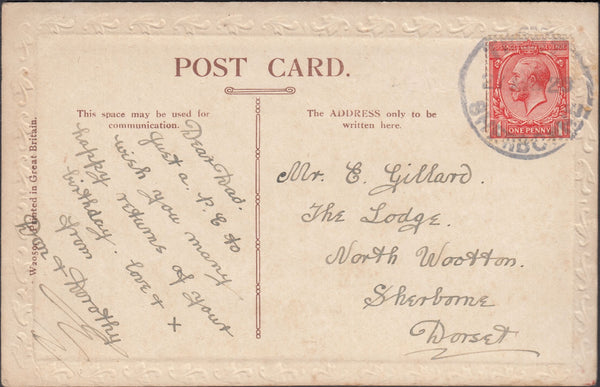 POST CARD.
This space may be used for
communication.
The ADDRESS only to be
written here.
Dear Dad.
Just a P.C to
wish you many
happy returns of your
birthday. love &
from
& Dorothy
Mr. E. Gillard.
The Lodge.
North Wootton.
Sherborne
Dorset
Printed in Great Britain.
POSTAGE REVENUE
ONE PENNY